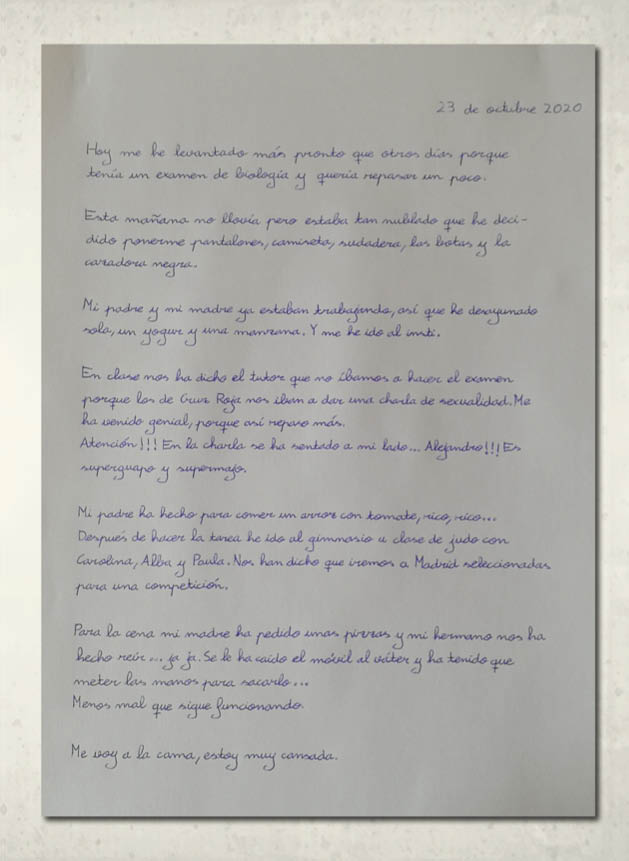 23 de octubre 2020
Hoy me he levantado más pronto que otros días porque
tenía un examen de biología y quería repasar un poco.
Esta mañana no llovía pero estaba tan nublado que he deci-
dido ponerme pantalones, camiseta, sudadera, las botas y la
cazadora negra.
Mi padre y mi madre ya estaban trabajando, así que he desayunado
sola, un yogur y una manzana. Y me he ido al insti.
En clase nos ha dicho el tutor que no íbamos a hacer el examen
porque los de Cruz Roja nos iban a dar una charla de sexualidad. Me
ha venido genial, porque así repaso más.
Atención!!! En la charla se ha sentado a mi lado... Alejandro!!! Es
superguapo y supermajo.
Mi padre ha hecho para comer un arroz con tomate, rico, rico...
Después de hacer la tarea he ido al gimnasio a clase de judo con
Carolina, Alba y Paula. Nos han dicho que iremos a Madrid seleccionadas
para una competición.
Para la cena mi madre ha pedido unas pizzas y mi hermano nos ha
hecho reír... ja ja. Se le ha caído el móvil al váter y ha tenido que
meter las manos para sacarlo...
Menos mal que sigue funcionando.
Me voy a la cama, estoy muy cansada.